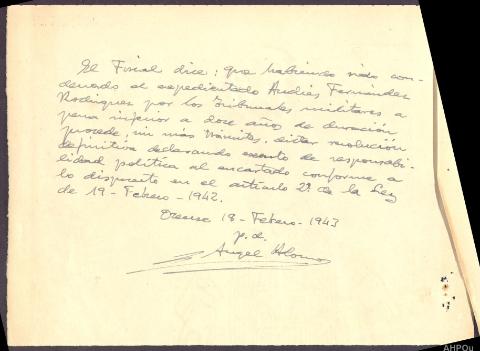 El Fiscal dice: que habiendo sido con-
denado el expedientado Andrés Fernández
Rodríguez por los Tribunales militares a
pena inferior a doce años de duración
procede, sin más trámites, dictar resolución
definitiva declarando exento de responsabi-
lidad política al encartado conforme a
lo dispuesto en el artículo 2º de la Ley
de 19 - Febrero - 1942.
Orense 18 - Febrero - 1943
p. d.
Angel Alonso
AHPOu